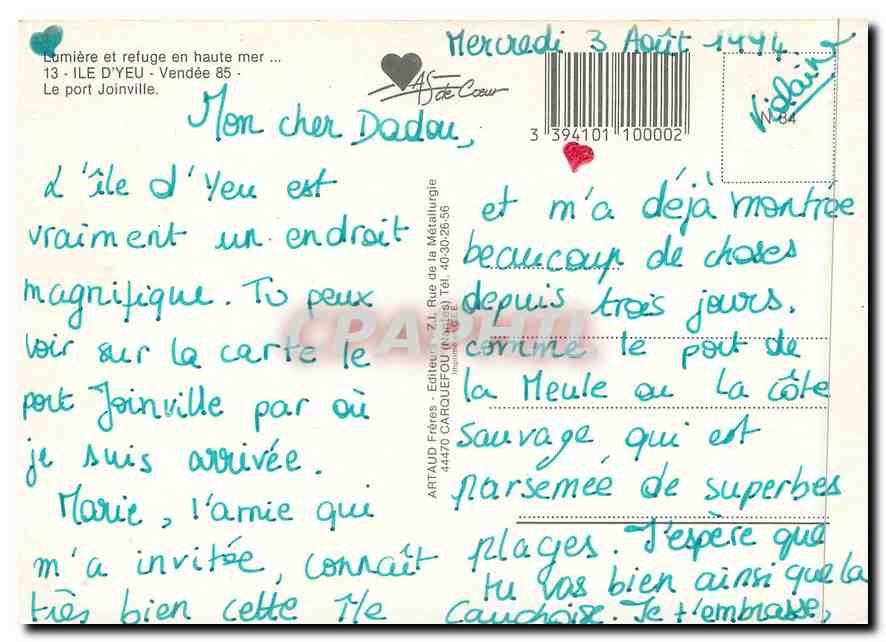 Lumière et refuge en haute mer ...
13 - ILE D'YEU - Vendée 85 -
Le port Joinville.
AS de Cœur
Mercredi 3 Août 1994
3 394101 100002
N 84
Violaine
Mon cher Dadou,
L'île d'Yeu est
vraiment un endroit
magnifique. Tu peux
voir sur la carte le
port Joinville par où
je suis arrivée.
Marie, l'amie qui
m'a invitée, connaît
très bien cette île
ARTAUD Frères - Editeurs - Z.I. Rue de la Métallurgie
44470 CARQUEFOU (Nantes) Tél. 40-30-26-56
CPAPHIL
et m'a déjà montrée
beaucoup de choses
depuis trois jours.
comme le port de
la Meule ou la côte
sauvage, qui est
parsemée de superbes
plages. J'espère que
tu vas bien ainsi que la
Cauchoise. Je t'embrasse,